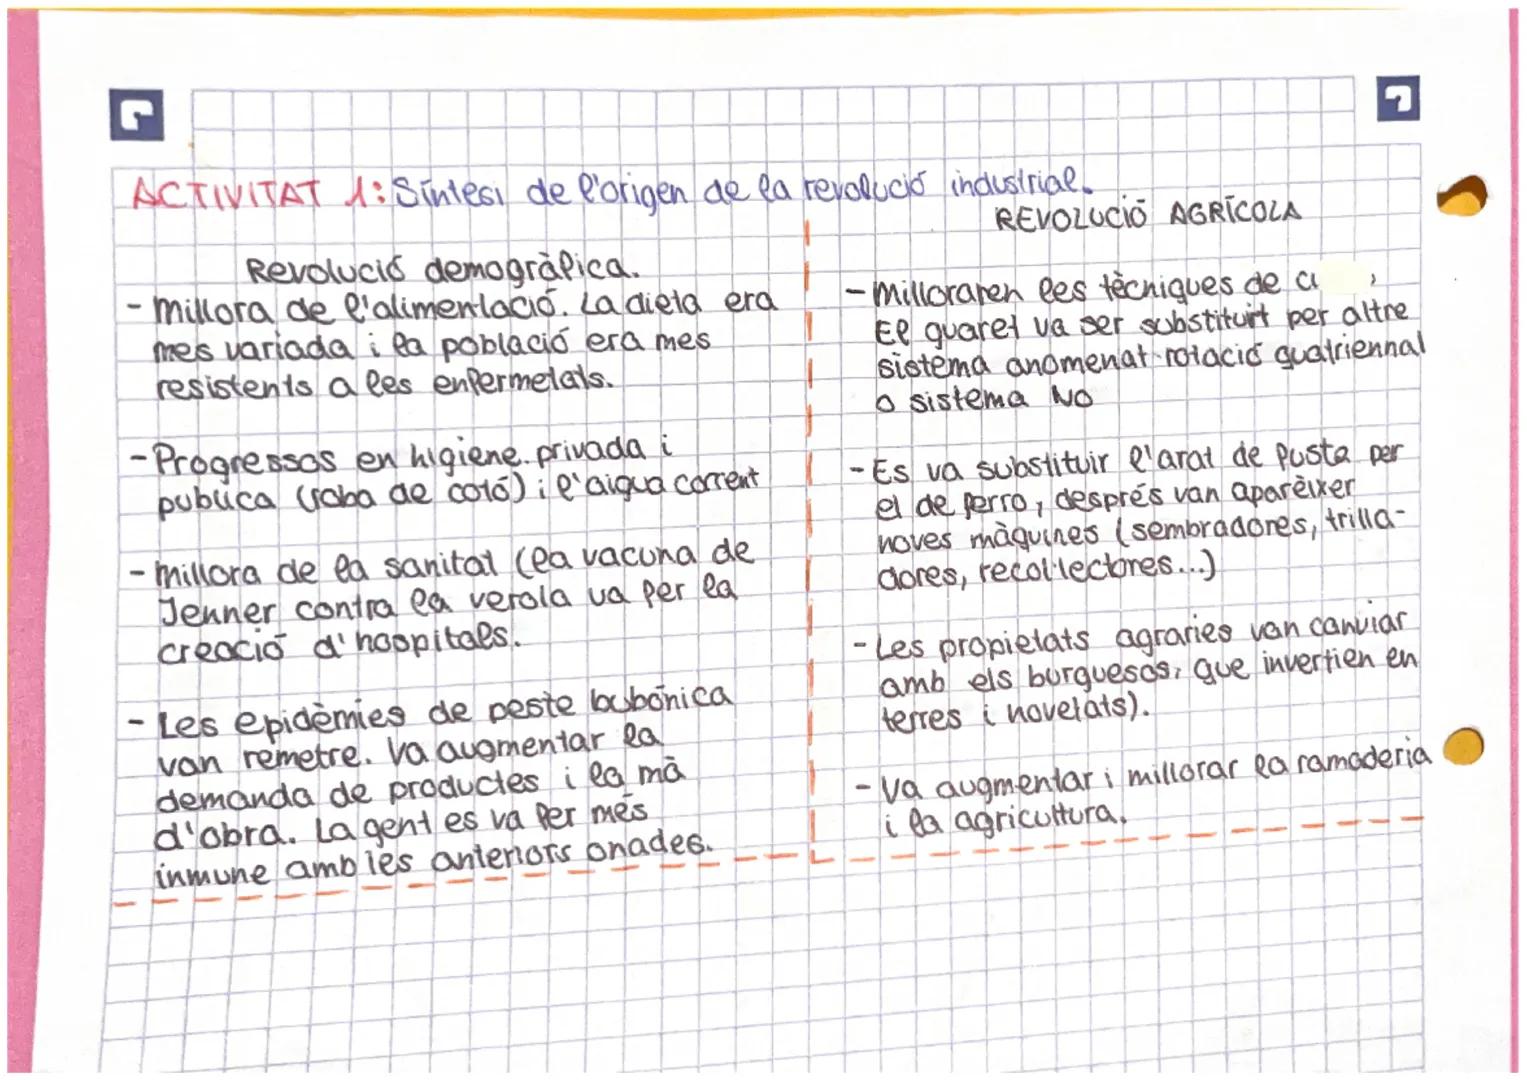 ACTIVITAT 1: Síntesi de l'origen de la revolució industrial.
Revolució demogràfica.
- Millora de l'alimentació. La dieta era
mes variada i la població era mes
resistents a les enfermetats.
- Progressos en higiene privada i
publica (roba de cotó) i l'aigua corrent
- Millora de la sanitat (la vacuna de
Jenner contra la verola va fer la
creació d'hospitals.
- Les epidèmies de peste bubònica
van remetre. Va augmentar la
demanda de productes i la mà
d'obra. La gent es va fer més
inmune amb les anteriors onades.
REVOLUCIÓ AGRÍCOLA
- Milloraren les tècniques de
El guaret va ser substituit per altre
sistema anomenat rotació quatriennal
o sistema No
- Es va substituir l'arat de fusta per
el de ferro, després van aparèixer
noves màquines (sembradores, trilla-
dores, recol·lectores...)
- Les propietats agraries van canviar
amb els burguesos, que invertien en
terres i novetats).
- Va augmentar i millorar la ramaderia
i la agricultura.